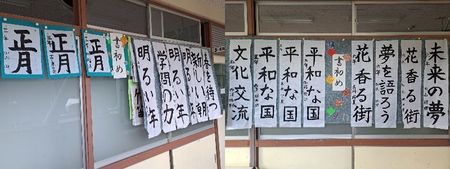 正月
正月
正月
初め
明るい年
学習の力
明るい年
新しい朝
春を待つ
未来の夢
花香る街
夢を語ろう
花香る街
初め
平和な国
平和な国
平和な国
文化交流